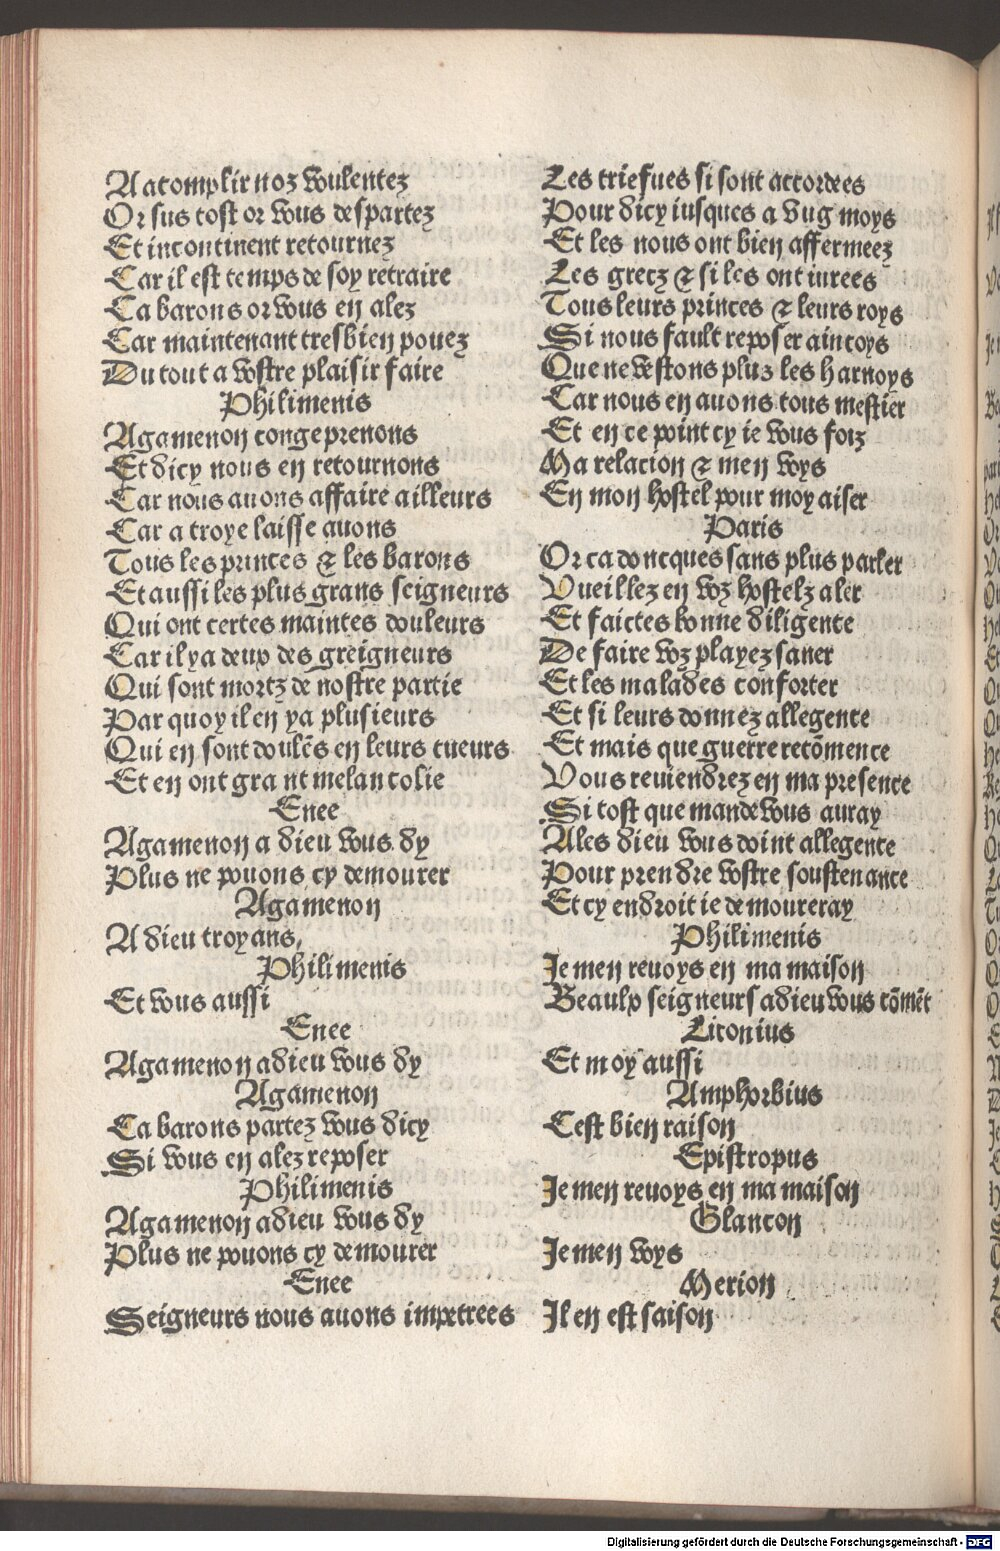 A acomplir noz voulentez
Or sus tost or vous despartez
Et incontinent retournez
Car il est temps de soy retraire
Ca barons or vous en alez
Car maintenant tresbien pouez
Du tout a vostre plaisir faire
Philimenis
Agamenon conge prenons
Et dicy nous en retournons
Car nous auons affaire ailleurs
Car a troye laisse auons
Tous les princes & les barons
Et aussi les plus grans seigneurs
Qui ont certes maintes douleurs
Car il ya deux des greigneurs
Qui sont mortz de nostre partie
Par quoy il en ya plusieurs
Qui en sont doulēs en leurs cueurs
Et en ont grant melancolie
Enee
Agamenon a dieu vous dy
Plus ne pouons cy demourer
Agamenon
A dieu troyans,
Philimenis
Et vous aussi
Enee
Agamenon adieu vous dy
Agamenon
Ca barons partez vous dicy
Si vous en alez reposer
Philimenis
Agamenon adieu vous dy
Plus ne pouons cy demourer
Enee
Seigneurs nous auons impetrees
Les triefues si sont accordees
Pour dicy iusques a vug moys
Et les nous ont bien affermeez
Les grecz & si les ont iurees
Tous leurs princes & leurs roys
Si nous fault reposer aincoys
Que ne vestons pluz les harnoys
Car nous en auons tous mestier
Et en ce point cy ie vous foiz
Ma relacion & men voys
En mon hostel pour moy aiser
Paris
Or ca doncques sans plus parler
Vueillez en voz hostelz aler
Et faictes bonne diligente
De faire voz playez saner
Et les malades conforter
Et si leurs donnez allegence
Et mais que guerre recōmence
Vous reuiendrez en ma presence
Si tost que mande vous auray
Ales dieu vous doint allegence
Pour prendre vostre soustenance
Et cy endroit ie demoureray
Philimenis
Je men reuoys en ma maison
Beaulx seigneurs adieu vous cōmēt
Liconius
Et moy aussi
Amphorbius
Cest bien raison
Epistropus
Je men reuoys en ma maison
Glancon
Je men voys
Merion
Il en est saison
Digitalisierung gefördert durch die Deutsche Forschungsgemeinschaft - DFG